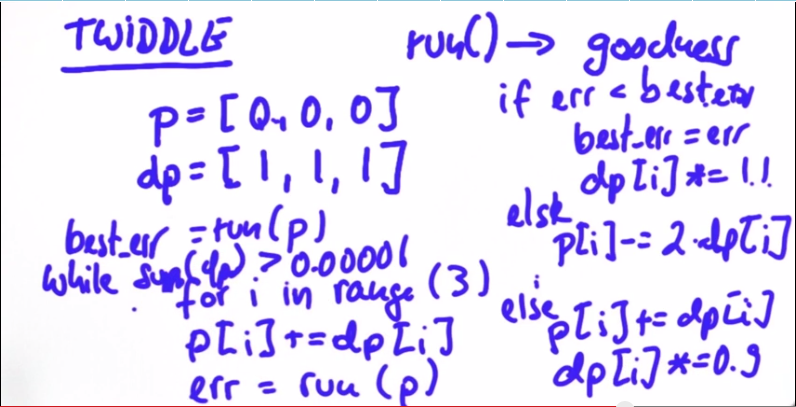 TWIDDLE
run() → goodness
p = [0, 0, 0]
dp = [1, 1, 1]
best_err = run(p)
while sum(dp) > 0.00001
for i in range (3)
p[i] += dp[i]
err = run (p)
if err < best_err
best_err = err
dp[i] *= 1.1
else
p[i] -= 2·dp[i]
else
p[i] += dp[i]
dp[i] *= 0.9